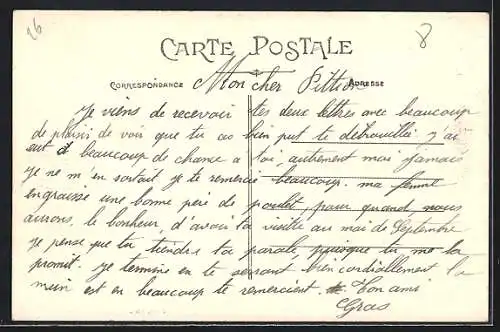 26
8
CARTE POSTALE
CORRESPONDANCE
ADRESSE
Mon cher
Je viens de recevoir tes deux lettres avec beaucoup
de plaisir de voir que tu as bien put te débrouiller j'ai
eut d beaucoup de chance a toi, autrement moi jamais
je ne m'en sortait je te remercie beaucoup. ma femme
engraisse une bonne père de poulet, pour quand nous
aurons, le bonheur, d'avoir ta visite au moi de Septembre
je pense que tu tiendra ta parole, puisque tu me la
promit. je termine en te serrant bien cordiallement la
main est en beaucoup te remercient. Ton ami
Gras